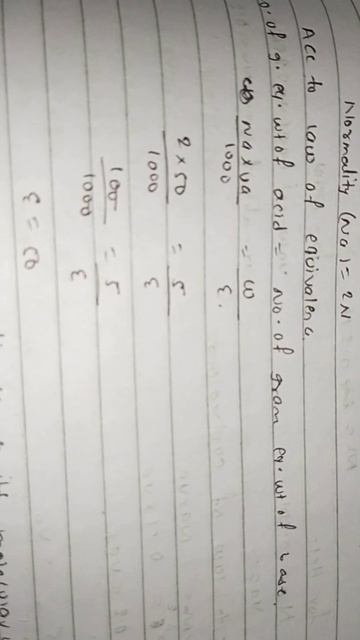 Normality (Na) = 2N
Acc to law of equivalenc.
o. of g. eq. wt of acid = No. of gram eq. wt of base.
Na x Va / 1000 = W / E.
2 x 50 / 1000 = 5 / E
100 / 1000 = 5 / E
E = 50